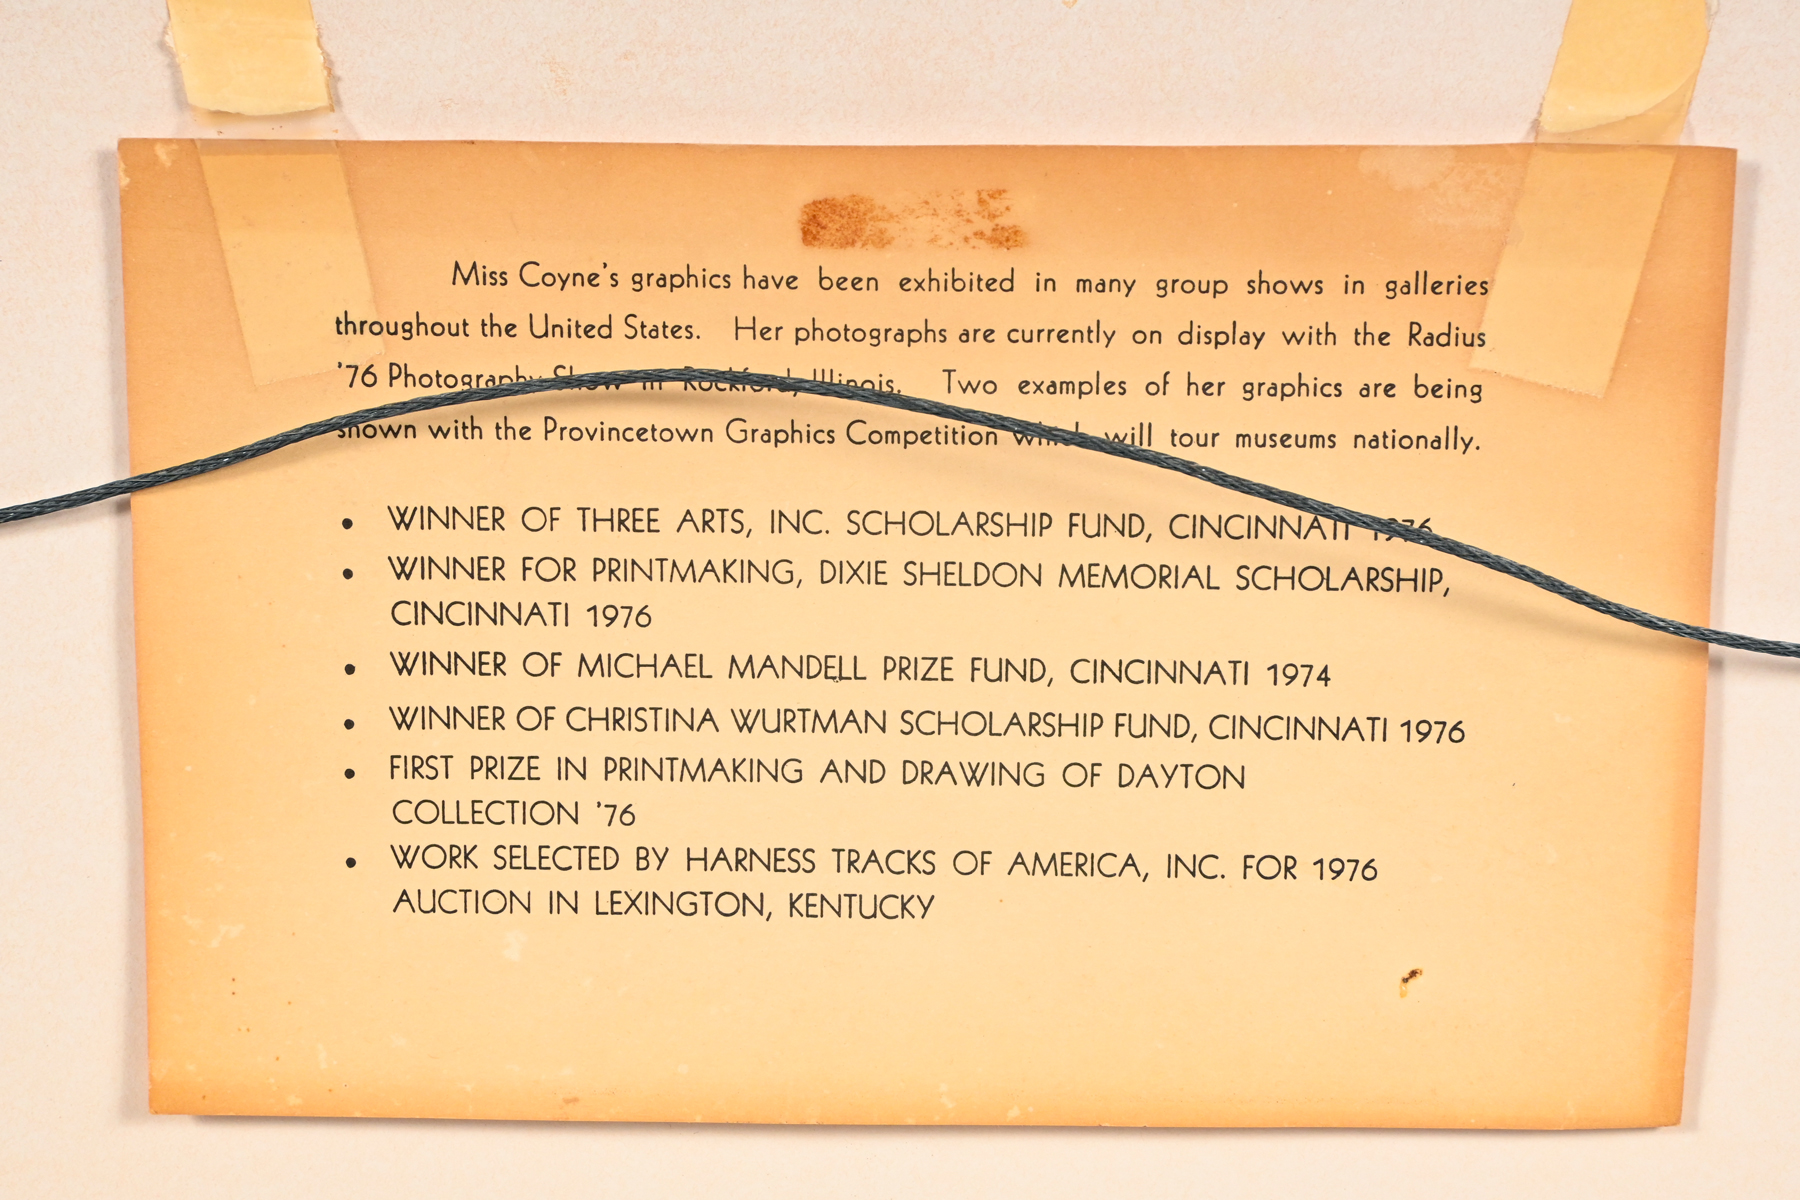 Miss Coyne's graphics have been exhibited in many group shows in galleries
throughout the United States. Her photographs are currently on display with the Radius
'76 Photography Show in Rockford, Illinois. Two examples of her graphics are being
shown with the Provincetown Graphics Competition which will tour museums nationally.
• WINNER OF THREE ARTS, INC. SCHOLARSHIP FUND, CINCINNATI 1976
• WINNER FOR PRINTMAKING, DIXIE SHELDON MEMORIAL SCHOLARSHIP,
CINCINNATI 1976
• WINNER OF MICHAEL MANDELL PRIZE FUND, CINCINNATI 1974
• WINNER OF CHRISTINA WURTMAN SCHOLARSHIP FUND, CINCINNATI 1976
• FIRST PRIZE IN PRINTMAKING AND DRAWING OF DAYTON
COLLECTION '76
• WORK SELECTED BY HARNESS TRACKS OF AMERICA, INC. FOR 1976
AUCTION IN LEXINGTON, KENTUCKY